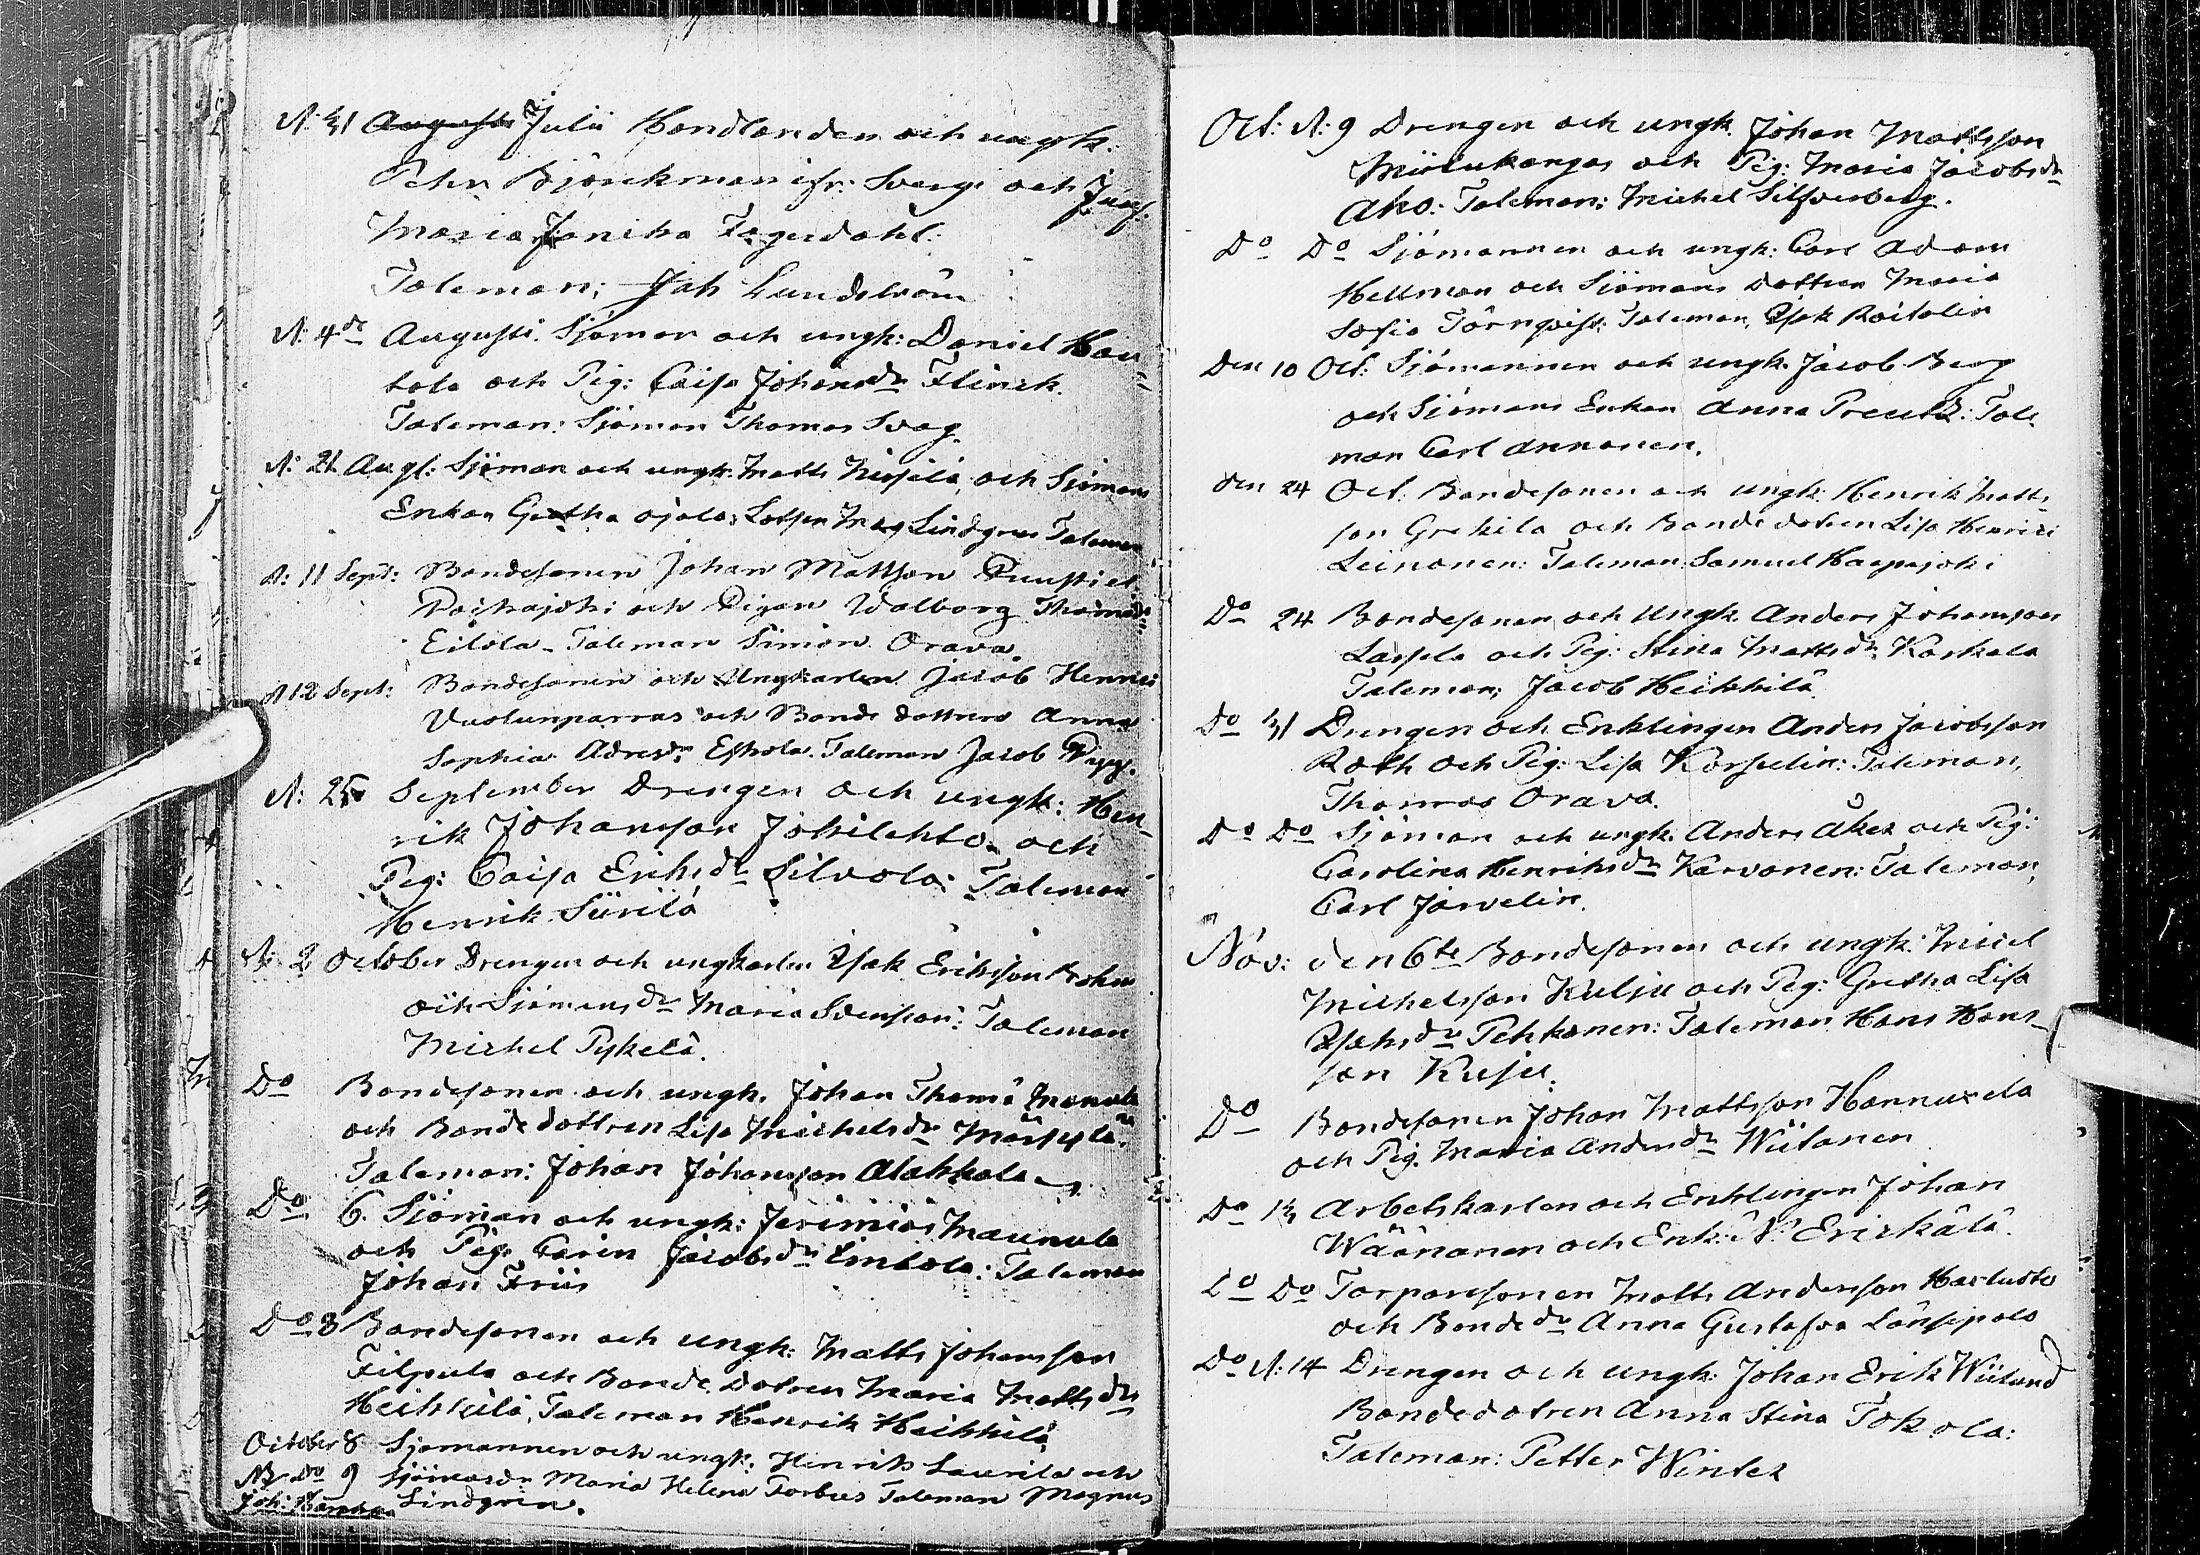 d: 31 Augusti Julii Handlanden och ungk:
Petter Björckman ifr: Sverge och Jungf:
Maria Janicka Fagerdahl:
Taleman: Jah Lundström
d: 4de Augusti. Sjöman och ungk: Daniel Hau-
tala och Pig: Caisa Johansdr Flinck.
Taleman: Sjöman Thomas Svag.
d: 21 Augt: Sjöman och ungk. Matts och Sjömans
Enkan Gretha Ojala: Lotsen Mag Lindgren Taleman
d: 11 Sept: Bondesonen Johan Mattson
och Pigan Walborg Thomædr
Eilola - Taleman Simon Orava.
d 12 Sept: Bondesonen och Ungkarlen Jacob Henrici
Vuolunparras och Bonde dottren Anna
Sophia Eskola. Taleman Jacob
d: 25 September Drengen och ungk: Hen-
rik Johansson Jokilehto och
Pig: Caisa Eriksdr Silvola: Taleman
Henrik Siirilä
d: 2 October Drengen och ungkarlen Isak Eriksson
och Sjömansdr Maria Svenson: Taleman
Michel Pykelä.
Do Bondesonen och ungk. Johan Thomæ
och Bondedottren Lisa Michelsdr
Taleman: Johan Johansson Alakkala
Do 6. Sjöman och ungk: Jerimias Maunula
och Pig: Carin Jacobsdr Lintola: Taleman
Johan Friis
Do 8 Bondesonen och ungk: Matts Johansson
Filpula och Bonde Dotren Maria Mattsdr
Heikkilä, Taleman Henrik Heikkilä
October 8 Sjömannen och ungk. Henrik Laurila och
Do 9 Sjömansdr Maria Helena Forbus Taleman Magnus
Lindgrén.
Oct: d: 9 Drengen och ungk Johan Mattsson
och Pig: Maria Jacobsdr
Aho: Taleman: Michel Silfverberg.
Do Do Sjömannen och ungk: Carl Adam
Hellman och Sjömans Dottren Maria
Sofia Törnqvist: Taleman, Isak Roitolin
Den 10 Oct: Sjömannen och ungk. Jacob Berg
och Sjömans Enkan Anna Preutz: Tale-
man Carl Annanen.
den 24 Oct. Bondesonen och ungk: Henrik Matts-
son Grekilä och Bondedotren Lisa Henrici
Leinonen: Taleman: Samuel Haapajoki
Do 24 Bondesonen och Ungk. Anders Johansson
Lassila och Pig: Stina Mattsdr Kaskala
Taleman; Jacob Heikkilä
Do 31 Drengen och Enklingen Anders Jacobsson
Roth och Pig: Lisa Korsulin: Taleman,
Thomas Orava.
Do Do Sjöman och ungk. Anders Åker och Pig:
Carolina Henriksdr Karvonen: Taleman,
Carl Järvelin.
Nov: den 6te Bondesonen och ungk: Michel
Michelsson Kulju och Pig: Gretha Lisa
Isaksdr Pehkonen: Taleman Hans Hans-
son Kulju.
Do Bondesonen Johan Mattsson Hannuxela
och Pig. Maria Andersdr Wiitanen
Do 13 Arbetskarlen och Enklingen Johan
Wäänanen och Enk: N: Erickälä.
Do Do Torparesonen Matts Andersson
och Bondedr Anna Gustafva Länsipalo
Do d: 14 Drengen och ungk: Johan Erik Wiitund
Bondedotren Anna Stina Tokola:
Taleman: Petter Winter